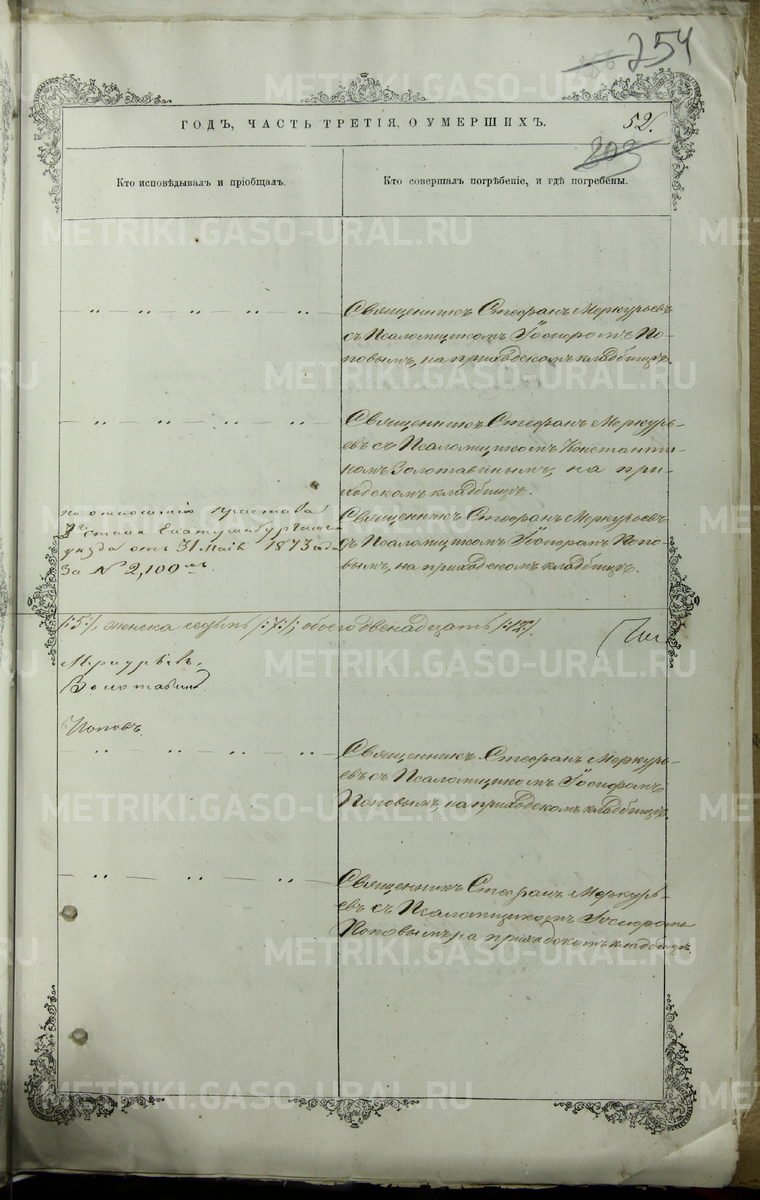 254
ГОДЪ, ЧАСТЬ ТРЕТІЯ, О УМЕРШИХЪ.
52.
203
Кто исповѣдывалъ и пріобщалъ.
Кто совершалъ погрѣбеніе, и гдѣ погребены.
Священникъ Стефанъ Меркурьевъ
съ Псаломщикомъ
повымъ, на приходскомъ кладбищѣ.
Священникъ Стефанъ Меркурь-
евъ съ Псаломщикомъ Константи-
номъ Золотавинымъ, на при-
ходскомъ кладбищѣ.
по отношенію пристава
стана Екатеринбургскаго
уѣзда отъ 31 Маія 1873 года
За № 2,100мъ
Священникъ Стефанъ Меркурьевъ
съ Псаломщикомъ Попо-
вымъ, на приходскомъ кладбищѣ.
/:5:/, женска седмь /:7:/, обоего двенадцать /:12:/.
Меркурьевъ.
Золотавинъ
Поповъ.
Священникъ Стефанъ Меркурь-
евъ съ Псаломщикомъ
Поповымъ, на приходскомъ кладбищѣ.
Священникъ Стефанъ Меркурь-
евъ съ Псаломщикомъ
Поповымъ на приходскомъ кладбищѣ.
METRIKI.GASO-URAL.RU